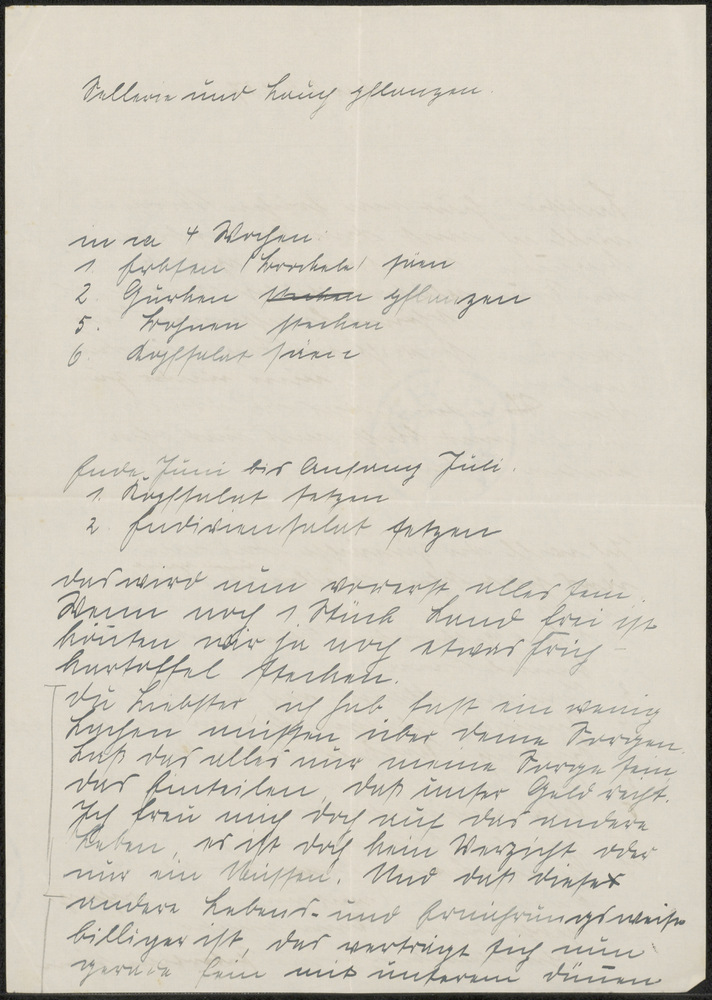 Sellerie und Lauch pflanzen.
in ca 4 Wochen:
1. Erbsen (Brockele) säen
2. Gurken stecken pflanzen
5. Bohnen stecken
6. Kopfsalat säen
Ende Juni bis Anfang Juli.
1. Kopfsalat setzen
2. Endiviensalat setzen
das wird nun vorerst alles sein.
Wenn noch 1 Stück Land frei ist
könnten wir ja noch etwas Früh-
kartoffel stecken.
Du Liebster, ich hab fast ein wenig
Lachen müssen über deine Sorgen.
Laß das alles nur meine Sorge sein
das Einteilen, daß unser Geld reicht.
Ich freu mich doch auf das andere
Leben, es ist doch kein Verzicht oder
nur ein Müssen. Und daß dieses
andere Lebens- und Ernährungsweise
billiger ist, das verträgt sich nun
gerade fein mit unserem dünnen